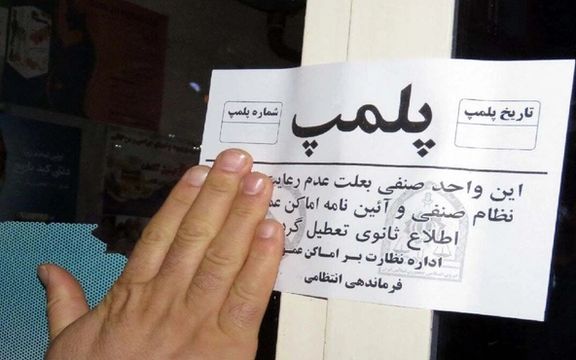 تاریخ پلمپ
پلمپ
شماره پلمپ
این واحد صنفی بعلت عدم رعایت
نظام صنفی و آئین نامه اماکن
اطلاع ثانوی تعطیل
اداره نظارت بر اماکن
فرماندهی انتظامی